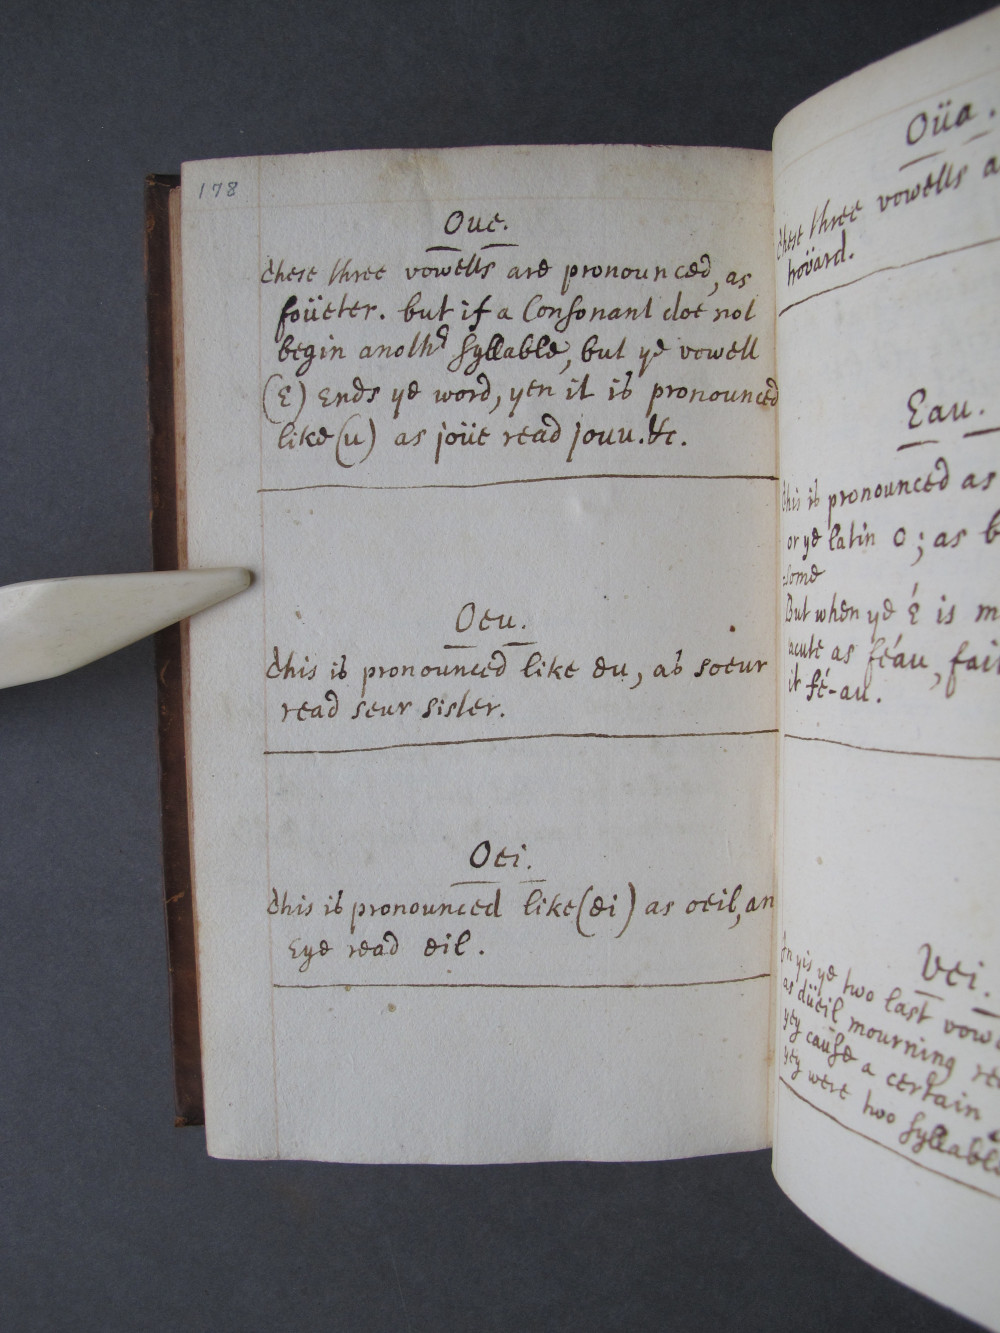 178
Oue.
these three vowells are pronounced, as
foüeter. but if a Consonant doe not
begin anothr syllable, but ye vowell
(E) Ends ye word, yen it is pronounced
like (u) as joüe read jouu. &c.
Oeu.
this is pronounced like eu, as soeur
read seur sister.
Oei.
this is pronounced like (ei) as oeil, an
Eye read eil.
Oüa.
these three vowells
hoüard.
Eau.
this is pronounced as
or ye latin o; as
-some
But when ye é is
acute as féau,
it fé-au.
Vei.
In yis ye two last
as düeil mourning
yey cause a certain
yey were two